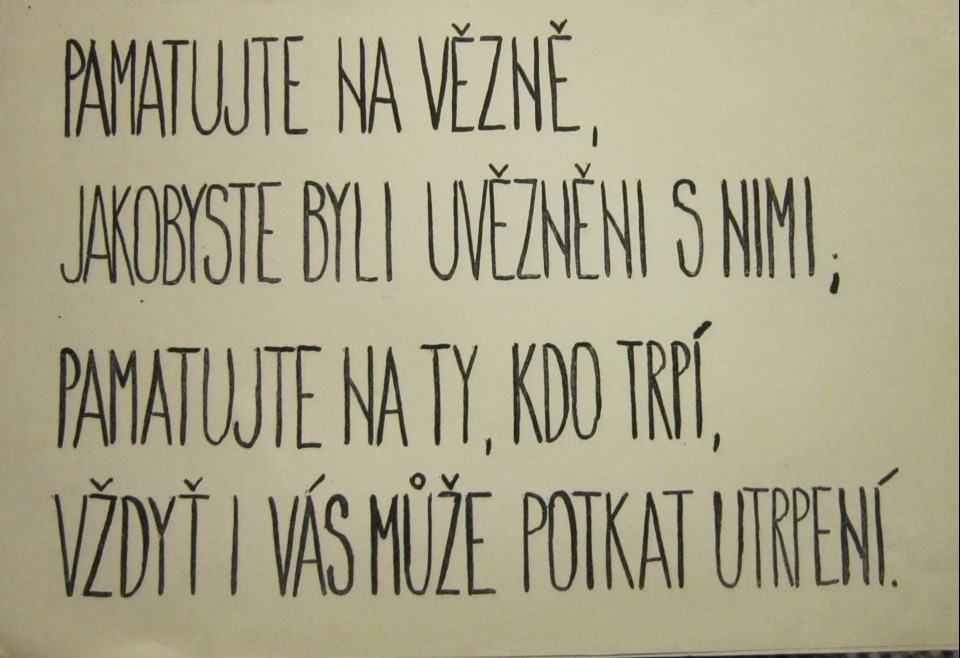 PAMATUJTE NA VĚZNĚ,
JAKOBYSTE BYLI UVĚZNĚNI S NIMI;
PAMATUJTE NA TY, KDO TRPÍ,
VŽDYŤ I VÁS MŮŽE POTKAT UTRPENÍ.